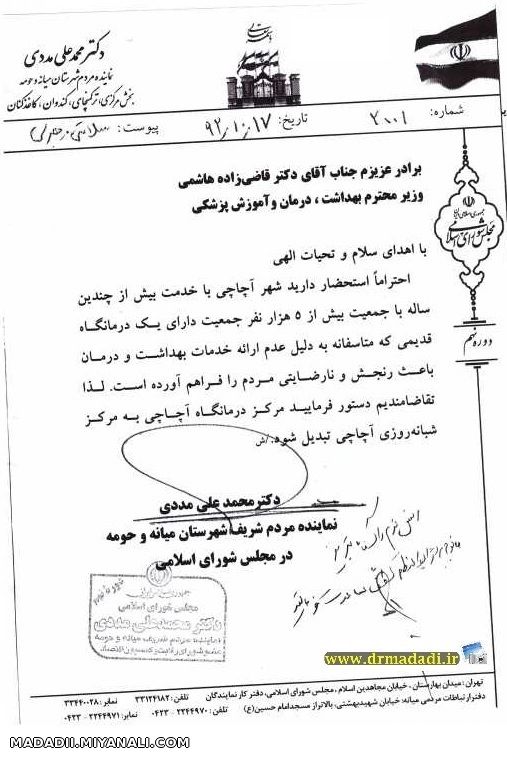 دکتر محمد علی مددی
نماینده مردم شهرستان میانه و حومه
بخش مرکزی، ترکمنچای، کندوان، کاغذکنان
شماره: ۲۰۰۱
تاریخ: ۹۲,۱۰,۱۷
پیوست:
برادر عزیزم جناب آقای دکتر قاضی‌زاده هاشمی
وزیر محترم بهداشت ، درمان وآموزش پزشکی
جمهوری اسلامی ایران
مجلس شورای اسلامی
دوره نهم
با اهدای سلام و تحیات الهی
احتراماً استحضار دارید شهر آچاچی با خدمت بیش از چندین
ساله با جمعیت بیش از ۵ هزار نفر جمعیت دارای یک درمانگاه
قدیمی که متاسفانه به دلیل عدم ارائه خدمات بهداشت و درمان
باعث رنجش و نارضایتی مردم را فراهم آورده است. لذا
تقاضامندیم دستور فرمایید مرکز درمانگاه آچاچی به مرکز
شبانه‌روزی آچاچی تبدیل شود./ش
دکتر محمد علی مددی
نماینده مردم شریف شهرستان میانه و حومه
در مجلس شورای اسلامی
مجلس شورای اسلامی
دکتر محمدعلی مددی
نماینده مردم شریف میانه و حومه
www.drmadadi.ir
تهران: میدان بهارستان، خیابان مجاهدین اسلام ، مجلس شورای اسلامی، دفتر کار نمایندگان تلفن: ۳۳۱۲۴۱۸۲ نمابر: ۳۳۴۴۰۰۲۸
دفتر ارتباطات مردمی میانه: خیابان شهیدبهشتی، بالاتراز مسجدامام حسین(ع) تلفن: ۲۲۴۴۹۷۰ - ۰۴۲۳ نمابر: ۲۲۴۴۹۷۱ - ۰۴۲۳
MADADII.MIYANALI.COM